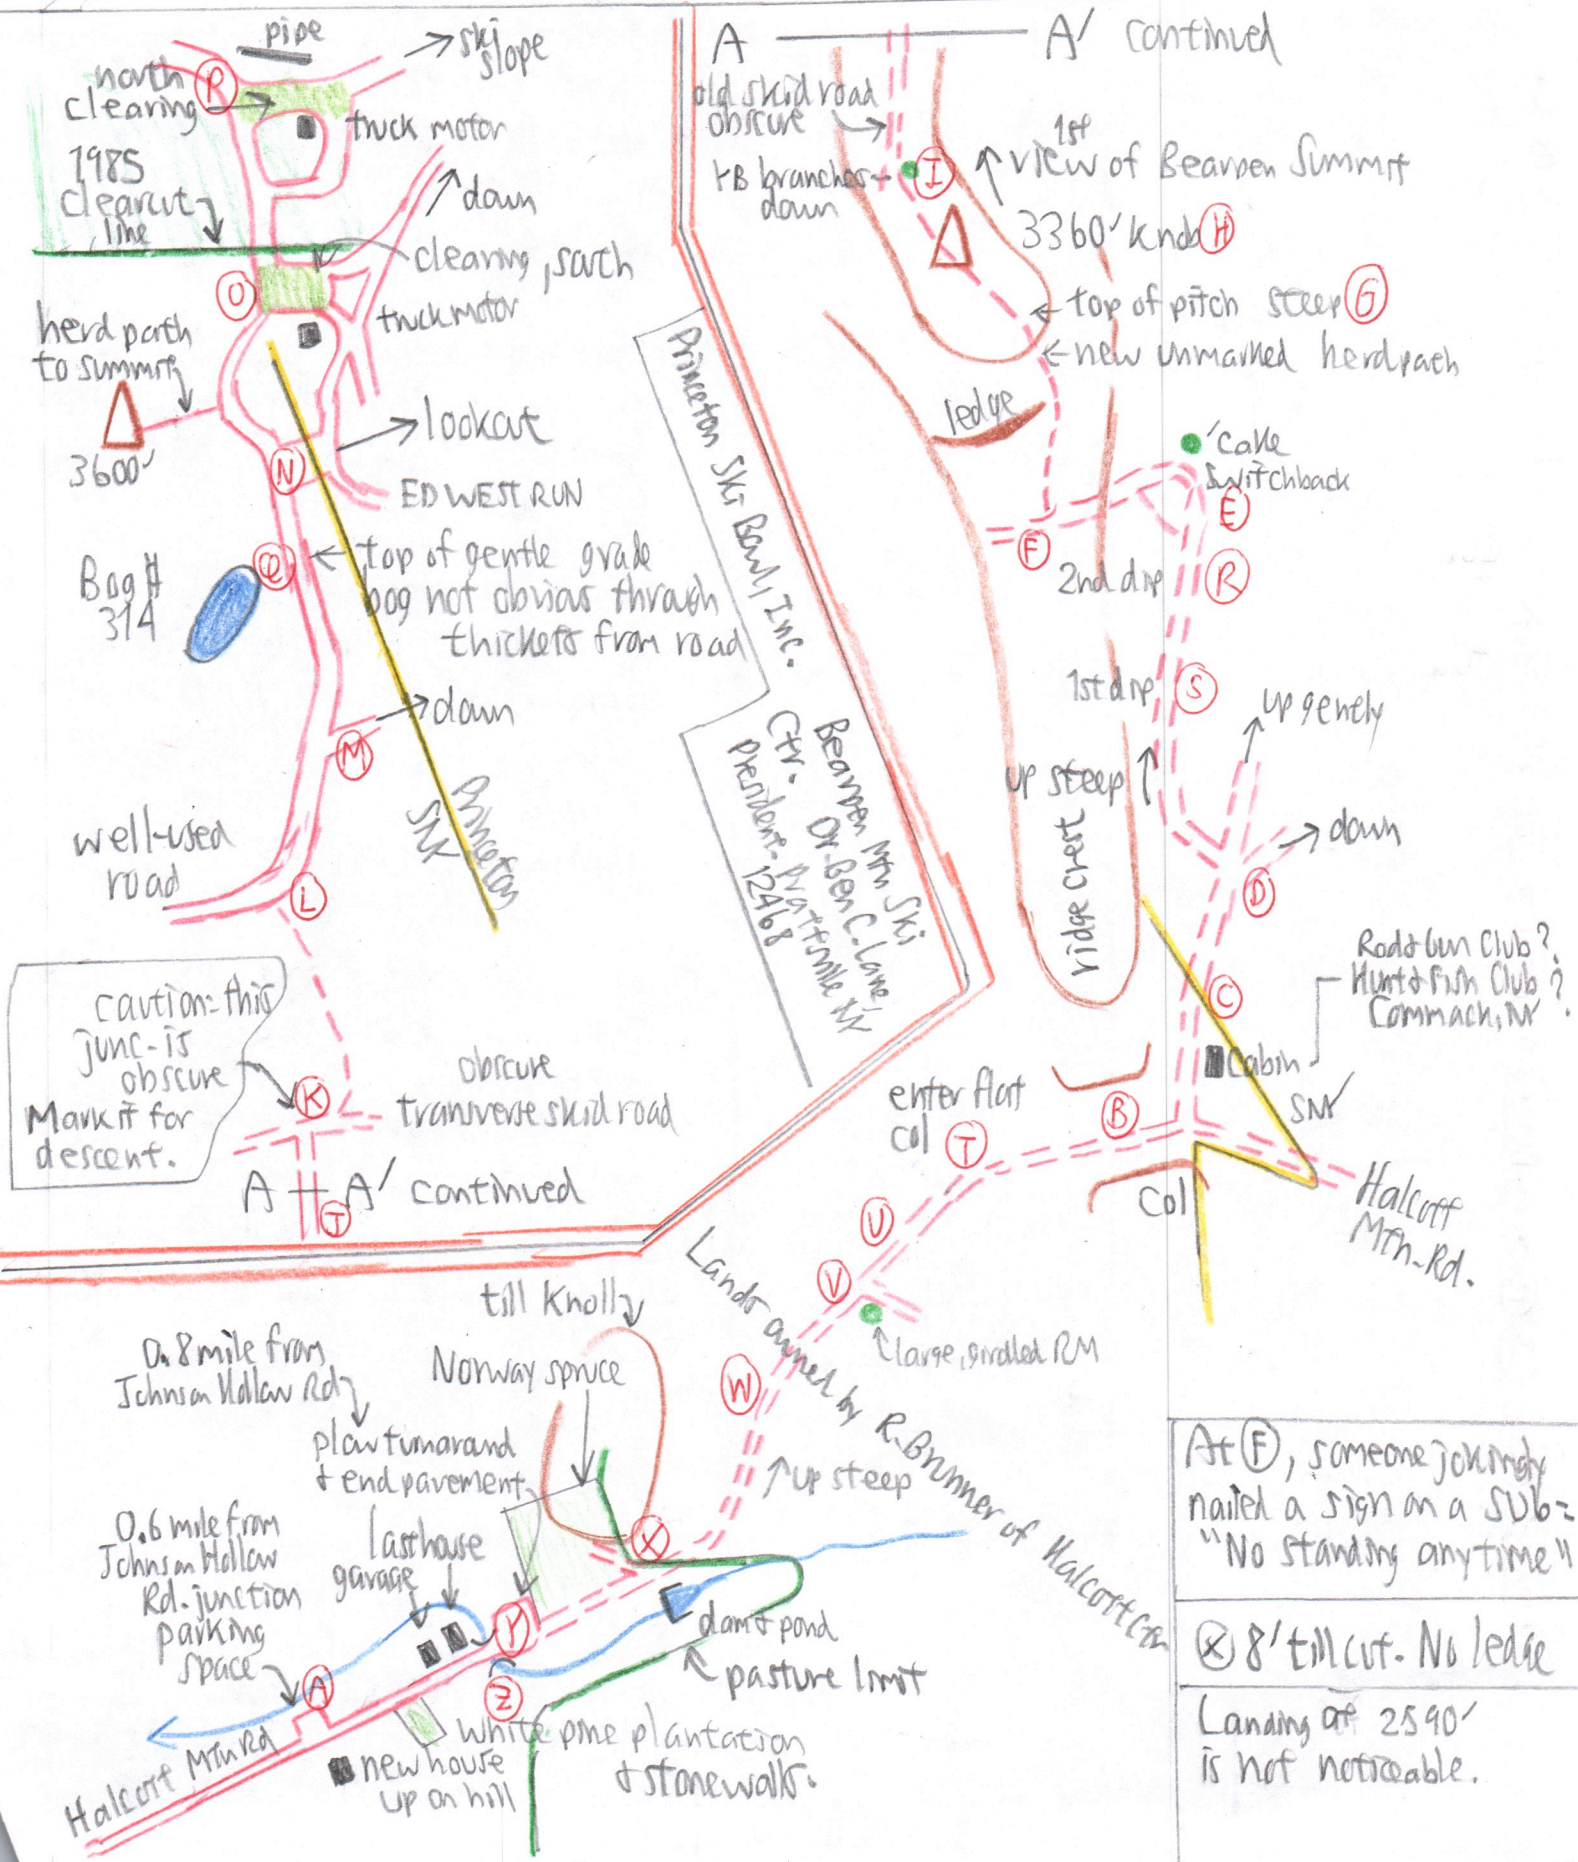 pipe
→ ski
slope
north
clearing
P
truck motor
1985
clearcut
line
down
clearing, south
truck motor
O
herd path
to summit
3600'
lookout
N
ED WEST RUN
Bog #
314
Q
top of gentle grade
bog not obvious through
thickets from road
down
M
Princeton
SNY
well-used
road
L
caution = this
junc- is
obscure
Mark it for
descent.
K
obscure
transverse skid road
A A' continued
J
Princeton Ski Bowl, Inc.
Bearpen Mtn Ski
Ctr. Dr. Ben C. Lane,
President- Prattsville NY
12468
A A' continued
old skid road
obscure
YB branches
down
I
1st
view of Bearpen Summit
3360' Knob H
top of pitch steep G
new unmarked herdpath
ledge
'cake
switchback
E
F
2nd dip
R
1st dip
S
up gently
up steep
down
D
ridge crest
C
Rod & Gun Club?
Hunt & Fish Club?
Commack, NY
Cabin
SNY
enter flat
col
T
B
Col
Halcott
Mtn. Rd.
U
V
large, girdled RM
W
up steep
Lands owned by R. Brunner of Halcott Ctr
till Knoll
0.8 mile from
Johnson Hollow Rd
Norway spruce
plow turnaround
& end pavement
0.6 mile from
Johnson Hollow
Rd. junction
parking
space
last house
garage
X
Y
dam & pond
pasture limit
A
Z
white pine plantation
& stonewalls.
Halcott Mtn Rd
new house
up on hill
At F, someone jokingly
nailed a sign on a SUb=
"No standing anytime"
X 8' till cut. No ledge
Landing at 2590'
is not noticeable.